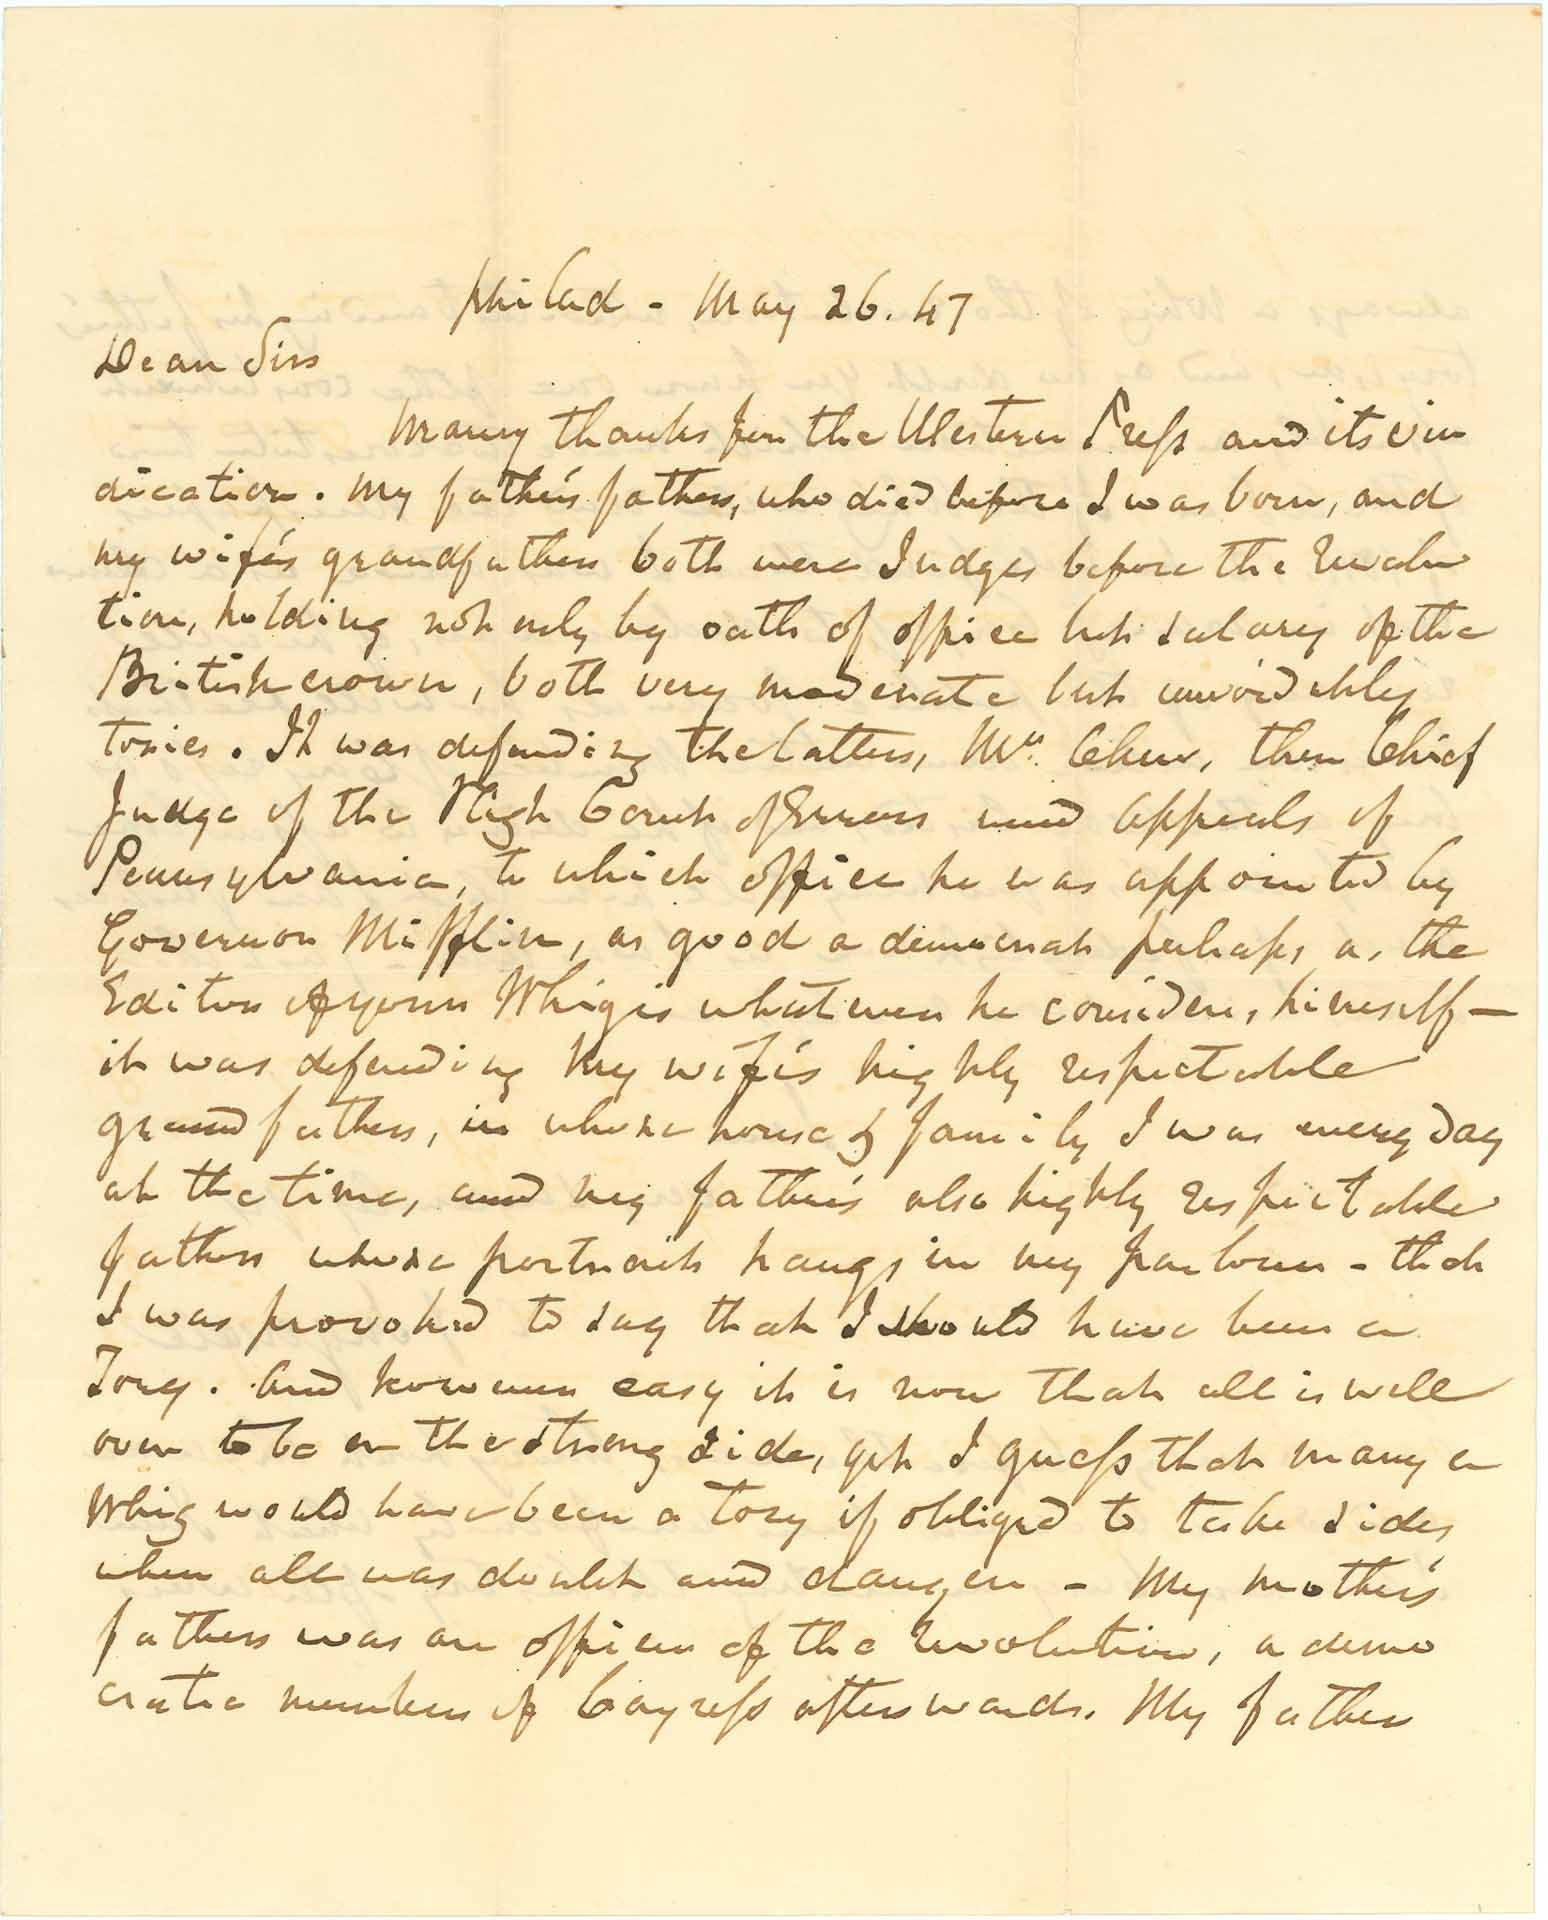 Philad - May 26. 47
Dear Sir
Many thanks for the Western Press and its vin
dication. My father's father, who died before I was born, and
my wife's grandfather both were Judges before the Revolu
tion, holding not only by oath of office but salary of the
British crown, both very moderate but unavoidably
tories. It was defending the latter, Mr. Chew, then Chief
Judge of the High Court of Errors and Appeals of
Pennsylvania, to which office he was appointed by
Governor Mifflin, as good a democrat perhaps as the
Editor of your Whig is whatever he considers himself—
it was defending my wife's highly respectable
grandfather, in whose house & family I was every day
at the time, and my father's also highly respectable
father whose portrait hangs in my parlour - that
I was provoked to say that I should have been a
Tory. And however easy it is now that all is well
over to be on the strong side, yet I guess that many a
Whig would have been a tory if obliged to take sides
when all was doubt and danger - My mother's
father was an officer of the Revolution, a demo
cratic member of Congress afterwards. My father